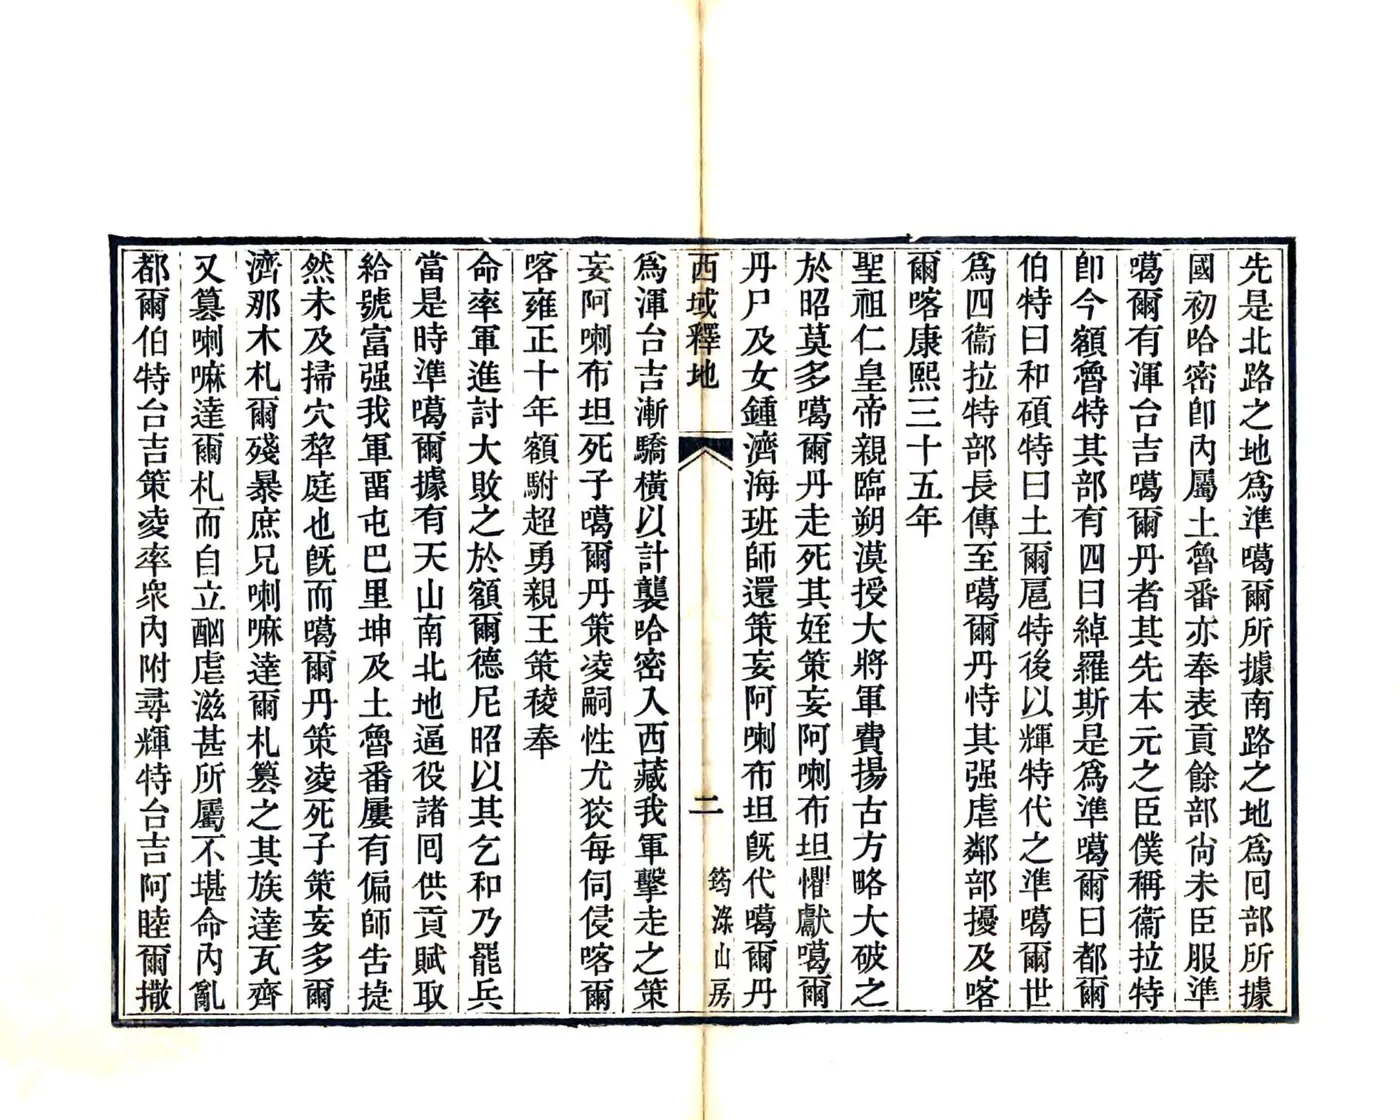 先是北路之地爲準噶爾所據南路之地爲回部所據
國初哈密卽內屬土魯番亦奉表貢餘部尙未臣服準
噶爾有渾台吉噶爾丹者其先本元之臣僕稱衞拉特
卽今額魯特其部有四曰綽羅斯是爲準噶爾曰都爾
伯特曰和碩特曰土爾扈特後以輝特代之準噶爾世
爲四衞拉特部長傳至噶爾丹恃其强虐鄰部擾及喀
爾喀康熙三十五年
聖祖仁皇帝親臨朔漠授大將軍費揚古方略大破之
於昭莫多噶爾丹走死其姪策妄阿喇布坦懼獻噶爾
丹尸及女鍾濟海班師還策妄阿喇布坦旣代噶爾丹
西域釋地
二
筠淥山房
爲渾台吉漸驕橫以計襲哈密入西藏我軍擊走之策
妄阿喇布坦死子噶爾丹策凌嗣性尤狡每伺侵喀爾
喀雍正十年額駙超勇親王策稜奉
命率軍進討大敗之於額爾德尼昭以其乞和乃罷兵
當是時準噶爾據有天山南北地逼役諸回供貢賦取
給號富强我軍畱屯巴里坤及土魯番屢有偏師告捷
然未及掃穴犂庭也旣而噶爾丹策凌死子策妄多爾
濟那木札爾殘暴庶兄喇嘛達爾札篡之其族達瓦齊
又篡喇嘛達爾札而自立酗虐滋甚所屬不堪命內亂
都爾伯特台吉策凌率衆內附尋輝特台吉阿睦爾撒